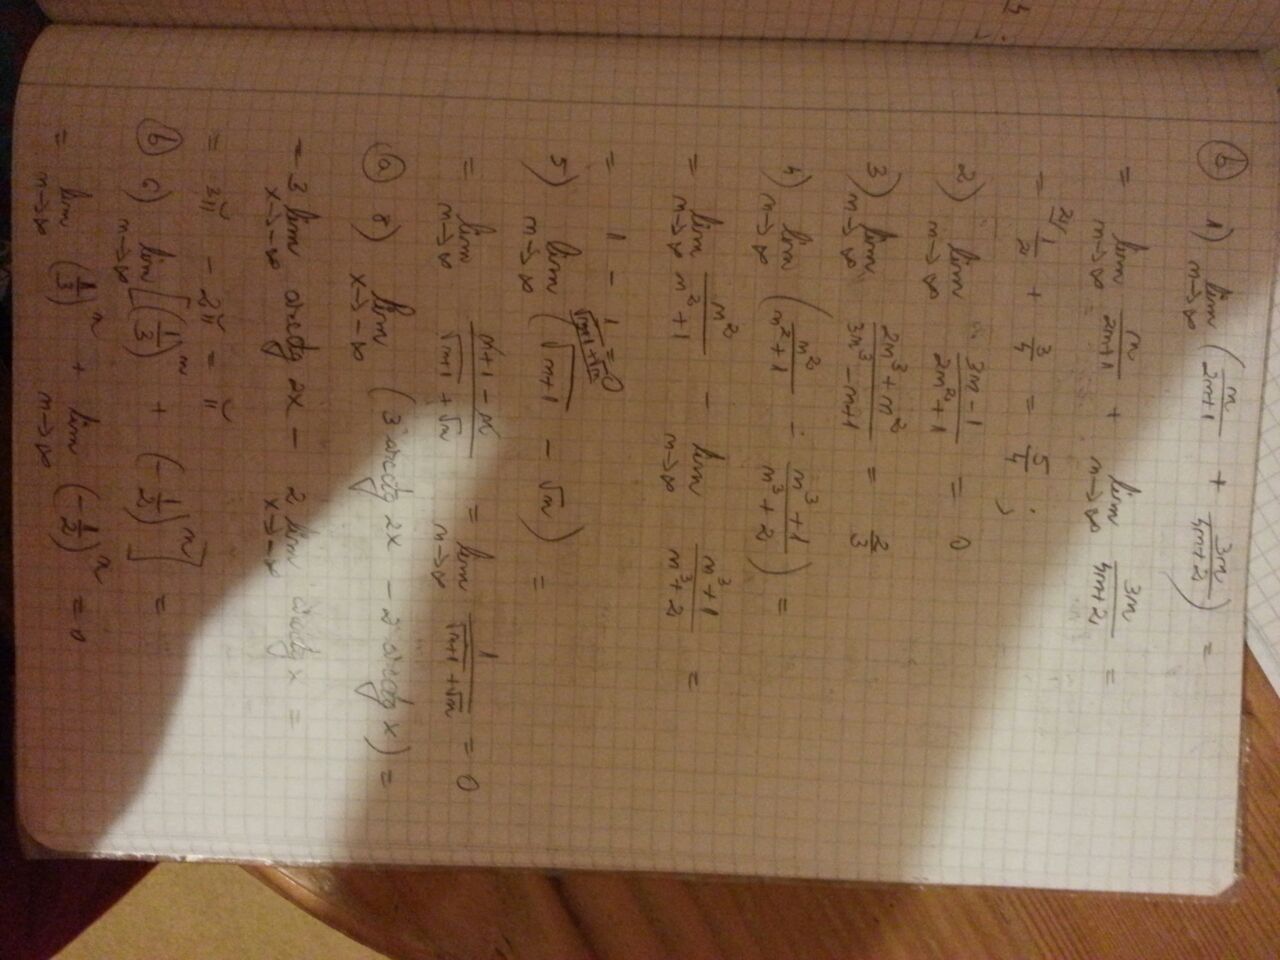 b 1) lim n→∞ (n/(2n+1) + 3n/(4n+2)) =
= lim n→∞ n/(2n+1) + lim n→∞ 3n/(4n+2) =
= 2/ 1/2 + 3/4 = 5/4 ;
2) lim n→∞ (3n-1)/(2n²+1) = 0
3) lim n→∞ (2n³+n²)/(3n³-n+1) = 2/3
4) lim n→∞ (n²/(n²+1) - (n³+1)/(n³+2)) =
= lim n→∞ n²/(n²+1) - lim n→∞ (n³+1)/(n³+2) =
= 1 - 1 = 0
√(n+1) + √n
5) lim n→∞ (√(n+1) - √n) =
= lim n→∞ (n+1-n)/(√(n+1) + √n) = lim n→∞ 1/(√(n+1) + √n) = 0
a 8) lim x→-∞ (3 arcctg 2x - 2 arcctg x) =
= 3 lim x→-∞ arcctg 2x - 2 lim x→-∞ arcctg x =
= 3π - 2π = π
b 6) lim n→∞ [(1/3)ⁿ + (-1/2)ⁿ] =
= lim n→∞ (1/3)ⁿ + lim n→∞ (-1/2)ⁿ = 0